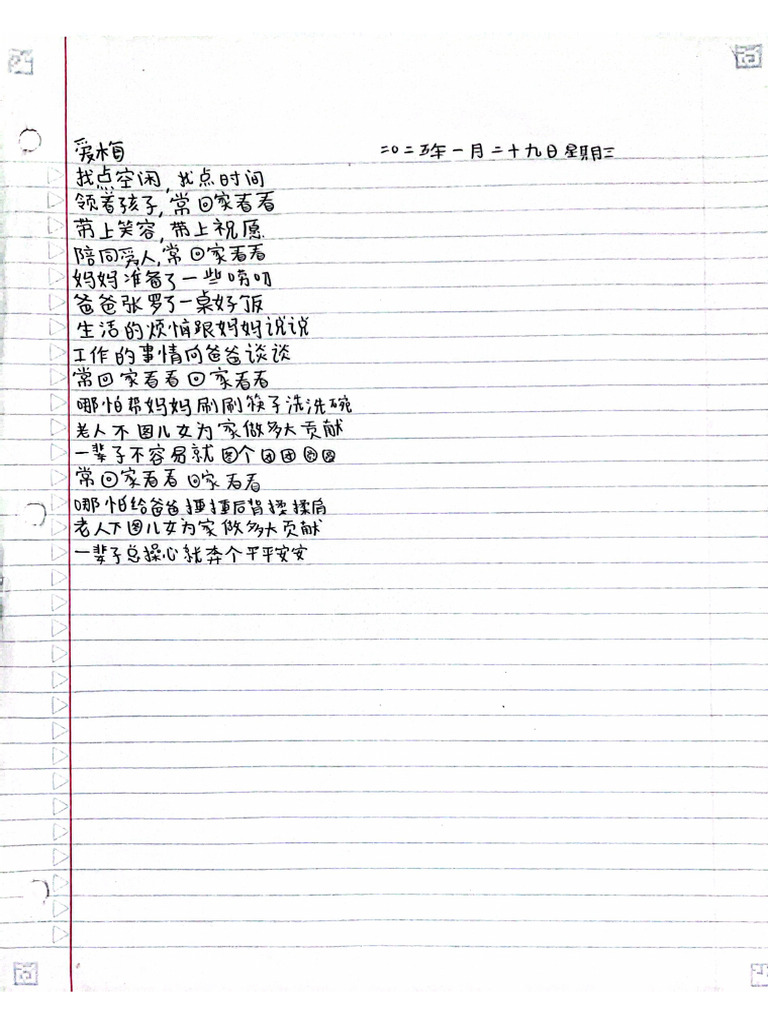 爱梅 二〇二五年一月二十九日星期三
找点空闲,找点时间
领着孩子,常回家看看
带上笑容,带上祝愿
陪同爱人,常回家看看
妈妈准备了一些唠叨
爸爸张罗了一桌好饭
生活的烦恼跟妈妈说说
工作的事情向爸爸谈谈
常回家看看回家看看
哪怕帮妈妈刷刷筷子洗洗碗
老人不图儿女为家做多大贡献
一辈子不容易就图个团团圆圆
常回家看看回家看看
哪怕给爸爸捶捶后背揉揉肩
老人不图儿女为家做多大贡献
一辈子总操心就奔个平平安安